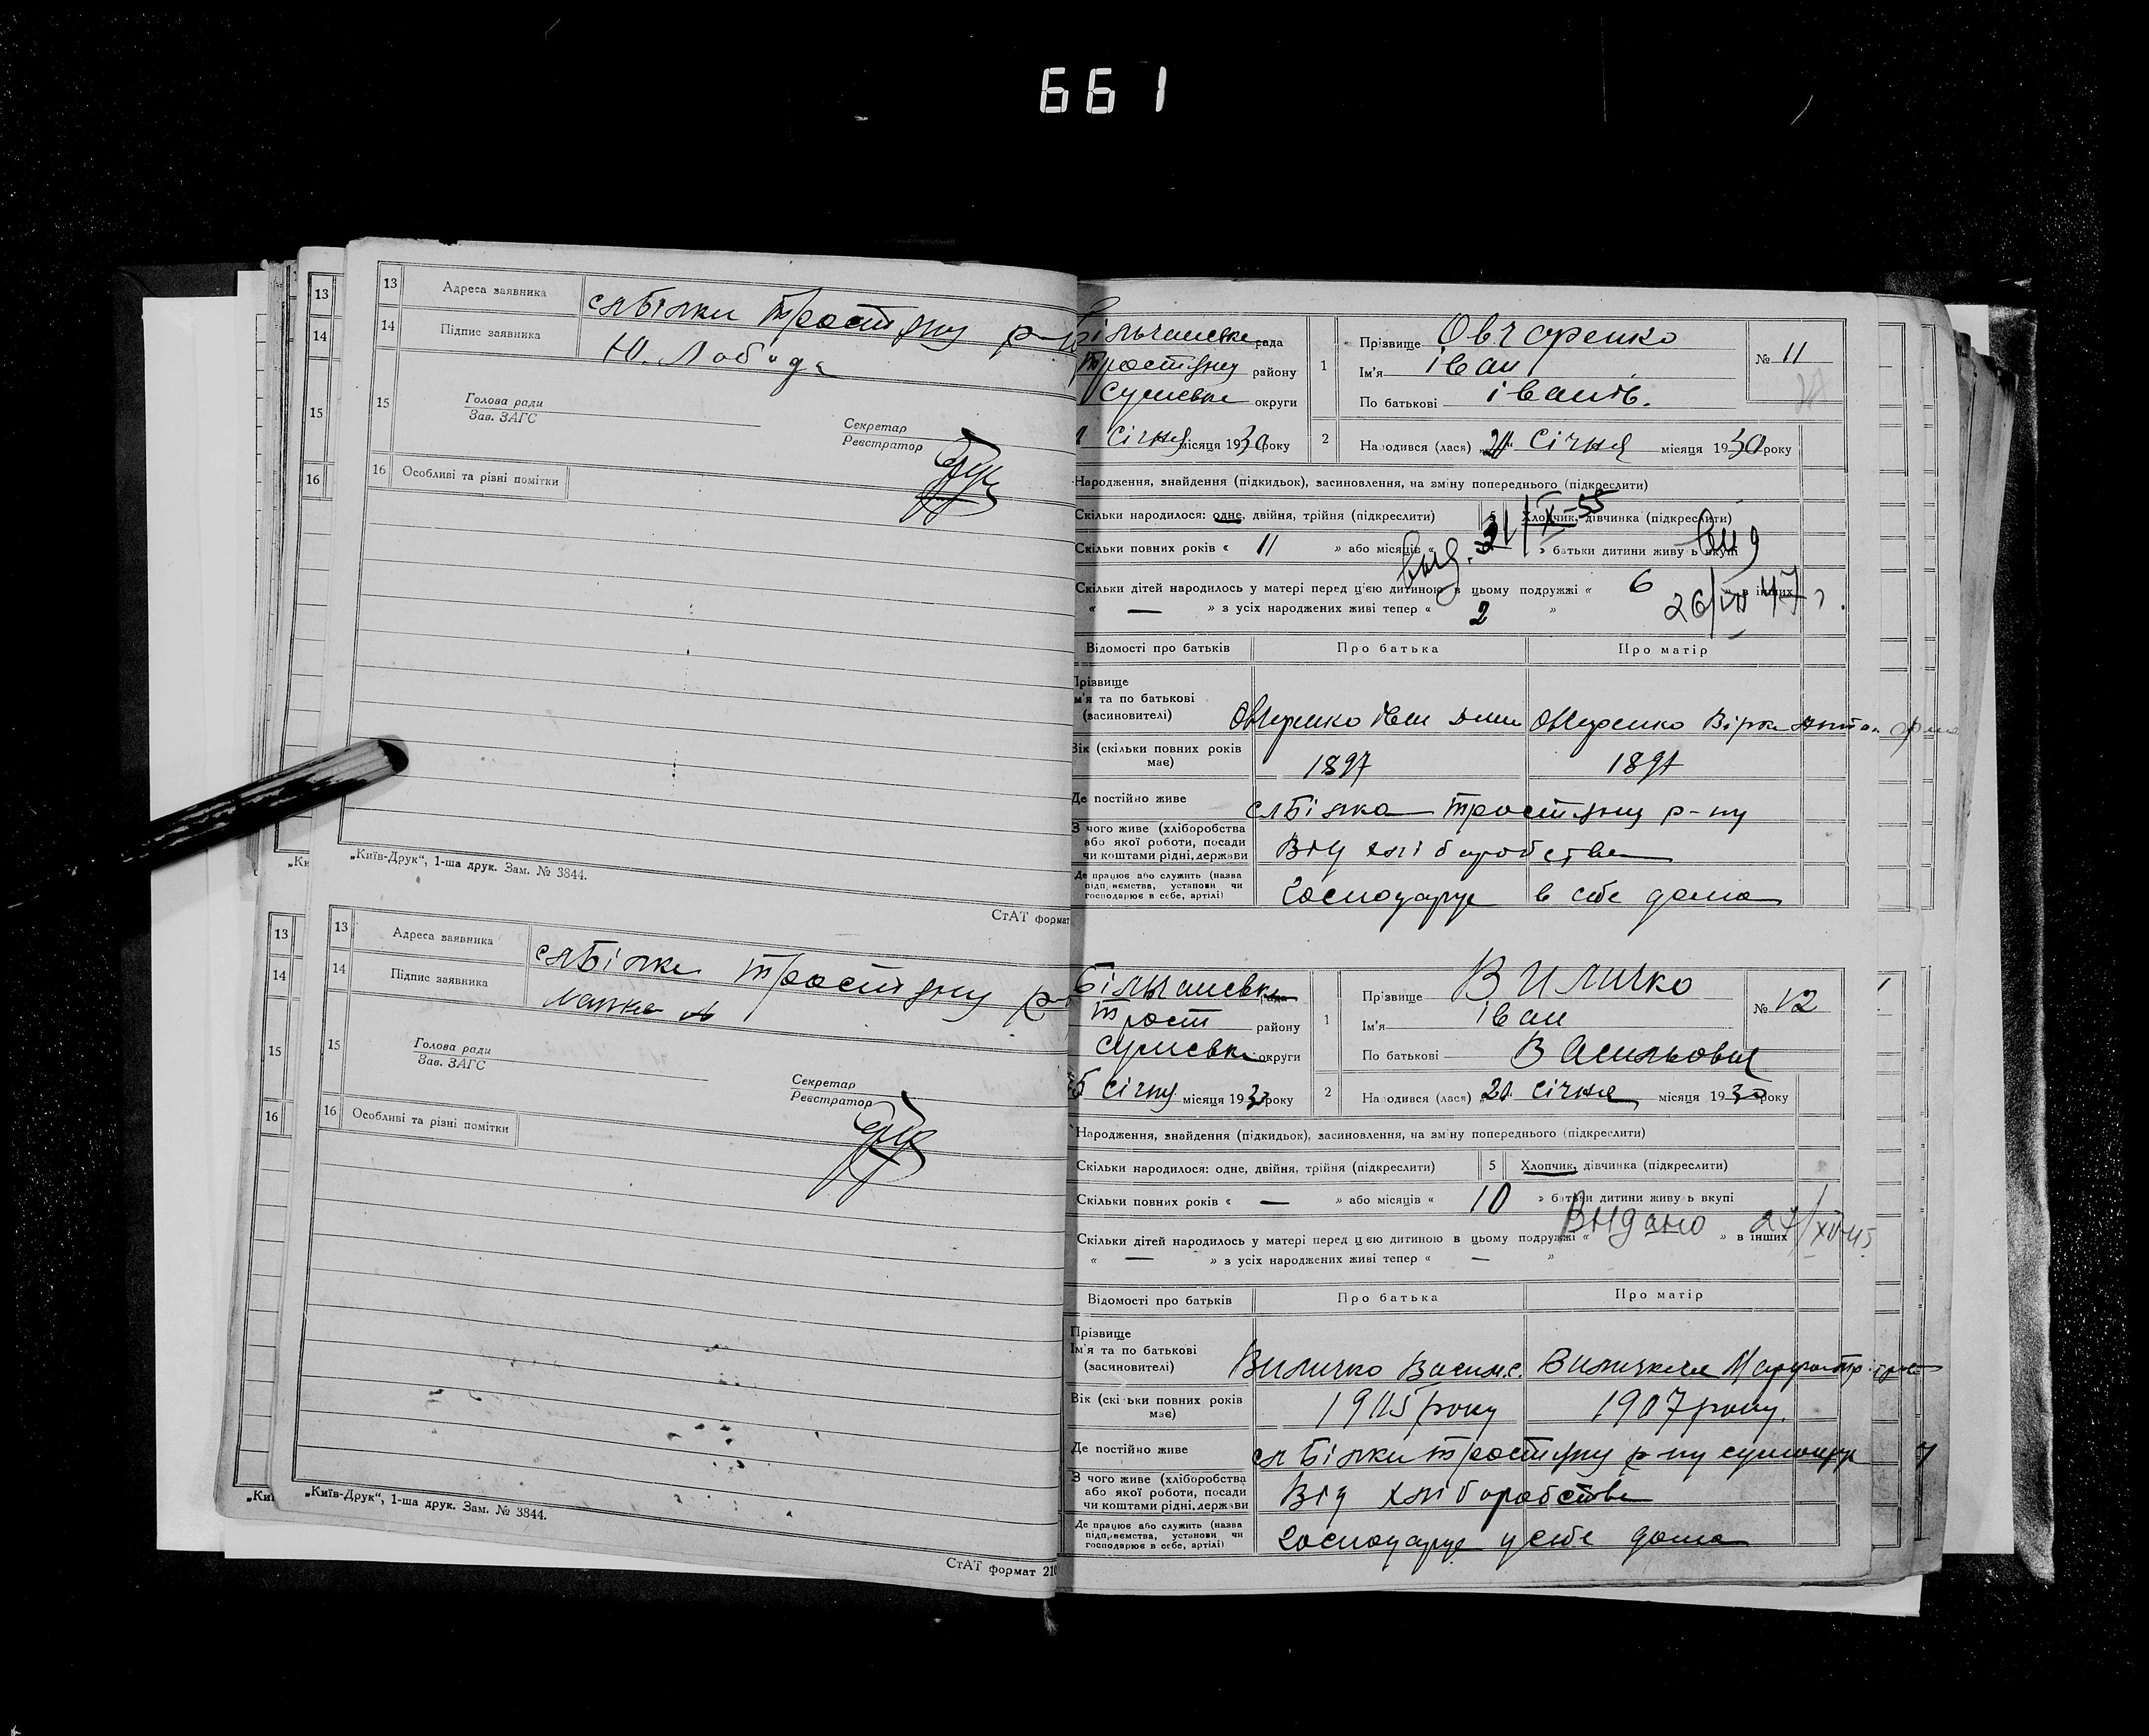 661
13
14
15
16
13 Адреса заявника слБілки Тростяну р-ну
14 Підпис заявника Ю. Лобода
15 Голова ради
Зав. ЗАГС
Секретар
Реєстратор
16 Особливі та різні помітки
„Ки
„Київ-Друк“, 1-ша друк. Зам. № 3844.
СтАТ формат
13
14
15
16
13 Адреса заявника слБілки Тростяну р-
14 Підпис заявника
15 Голова ради
Зав. ЗАГС
Секретар
Реєстратор
16 Особливі та різні помітки
„Киї
„Київ-Друк“, 1-ша друк. Зам. № 3844.
СтАТ формат 210
рада
Тростяну району
Сумське округи
Січня місяця 1930 року
1 Прізвище Овчаренко
Ім'я іван
По батькові іванів.
№ 11
2 Народився (лася) Січня місяця 1930 року
Народження, знайдення (підкидьок), засиновлення, на зміну попереднього (підкреслити)
Скільки народилося: одне, двійня, трійня (підкреслити) 5 Хлопчик, дівчинка (підкреслити)
Скільки повних років « 11 » або місяців « » батьки дитини живуть вкупі
вид. 31/X-55
вид
26/VII 47 р.
Скільки дітей народилось у матері перед цією дитиною в цьому подружжі « 6 » в інших
« — » з усіх народжених живі тепер « 2 »
Відомості про батьків Про батька Про матір
Прізвище
Ім'я та по батькові
(засиновителі)
Овчаренко Іван Овчаренко
Вік (скільки повних років
має)
1897 1897
Де постійно живе слБілка Тростяну р-ну
З чого живе (хліборобства
або якої роботи, посади
чи коштами рідні, держави
Від хліборобства
Де працює або служить (назва
підприємства, установи чи
господарює в себе, артілі)
Господарує в себе дома
Трост району
Сумське округи
Січну місяця 1930 року
1 Прізвище Виличко
Ім'я іван
По батькові Васильович
№ 12
2 Народився (лася) Січня місяця 1930 року
Народження, знайдення (підкидьок), засиновлення, на зміну попереднього (підкреслити)
Скільки народилося: одне, двійня, трійня (підкреслити) 5 Хлопчик, дівчинка (підкреслити)
Скільки повних років « — » або місяців « 10 » батьки дитини живуть вкупі
Видано 27/XII-45
Скільки дітей народилось у матері перед цією дитиною в цьому подружжі « » в інших
« — » з усіх народжених живі тепер « — »
Відомості про батьків Про батька Про матір
Прізвище
Ім'я та по батькові
(засиновителі)
Виличко Васил.
Вік (скільки повних років
має)
1905 року 1907 року.
Де постійно живе сл Білки Тростяну р-ну
З чого живе (хліборобства
або якої роботи, посади
чи коштами рідні, держави
Від хліборобства
Де працює або служить (назва
підприємства, установи чи
господарює в себе, артілі)
Господарує у себе дома